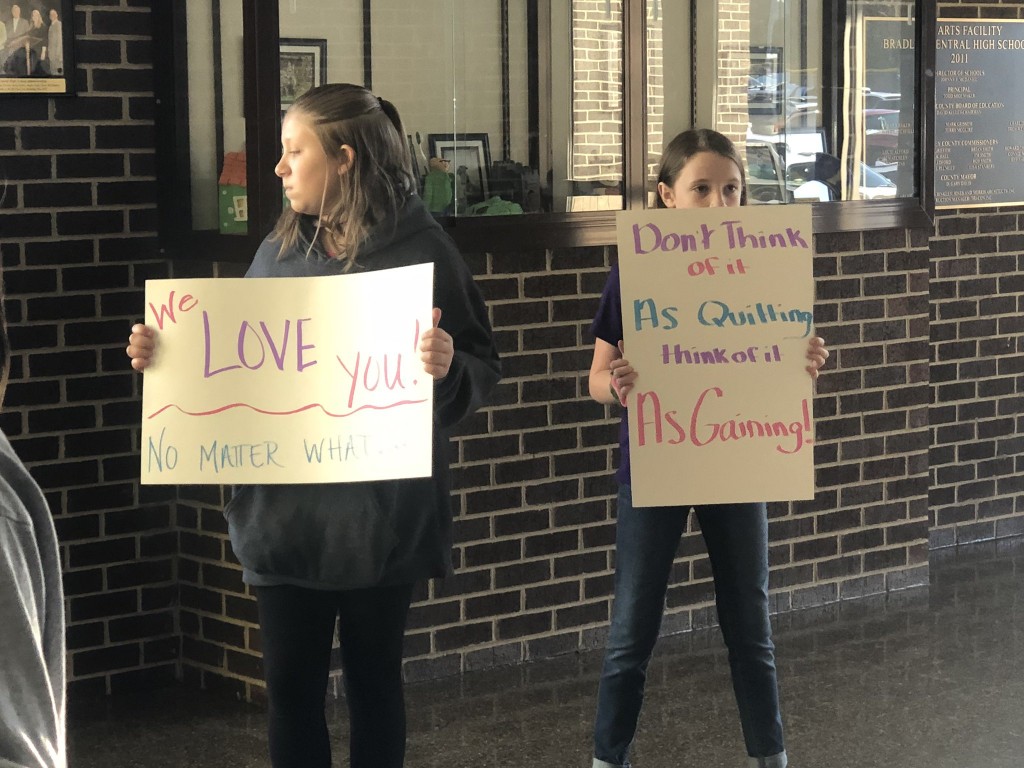 We
LOVE
YOU!
NO MATTER WHAT...
Don't Think
of it
As Quilting
think of it
As Gaining!
ARTS FACILITY
BRADL
ENTRAL HIGH SCHOO
2011
DIRECTOR OF SCHOOLS
PRINCIPAL
COUNTY BOARD OF EDUCATION
COUNTY MAYOR